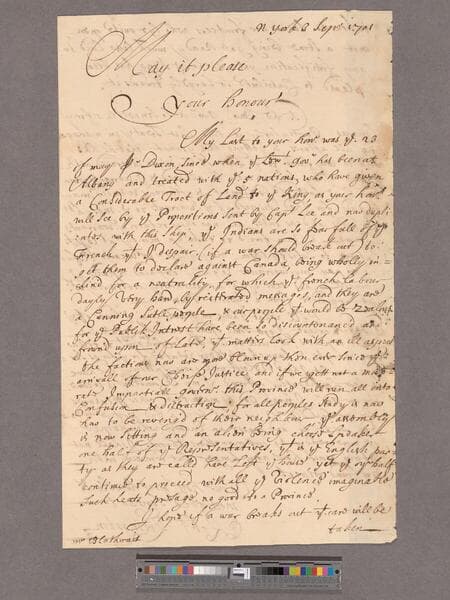 N. York 2 Sepr. 1701
May it please
your honour
My Last to your honr. was ye. 23
of may pr. Dixon, since when ye Lew. Govr. has been at
Albany and treated with ye. 5 nations, who have given
a Considerable Tract of Land to ye King, as your honr.
will See by ye Propositions Sent by Capt. Lee and now dupli
cates with this Ship, ye Indians are so fear full of ye
French yt. I despair (if a war should break out) to
get them to declare against Canada, being wholly in=
clind for a neutrality, for which ye french labour
dayly Very hard, by reitterated messages, and they are
a Cunning Subtle people, & our people yt would be zealous
for ye Publick Intrest have been so discountenanced and
frownd upon of Late, yt matters Look with an ill aspect
the factions now are more blown up then ever Since ye
arrivall of our Chief Justice and if we gett not a mode
rate Impartiall govern. this Province will run all into
Confusion & distraction for all peoples Study is now
how to be revenged of their neighbour ye assembly
is now Sitting and an alien being chose Speaker
one half of ye Representatives, yt is ye English par
ty as they are called have Left ye house, yet ye oyr half
continue to proceed with all ye Violence imaginable
Such heats presage no good to a Province.
I hope if a war breaks out yt care will be
taken
mr Blathwait